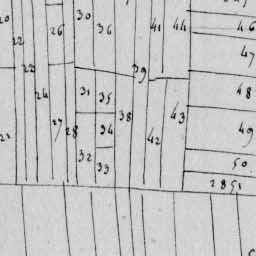 30
26
36
41
44
46
22
47
23
39
24
31
35
48
38
43
27
28
34
49
42
32
33
50
2851